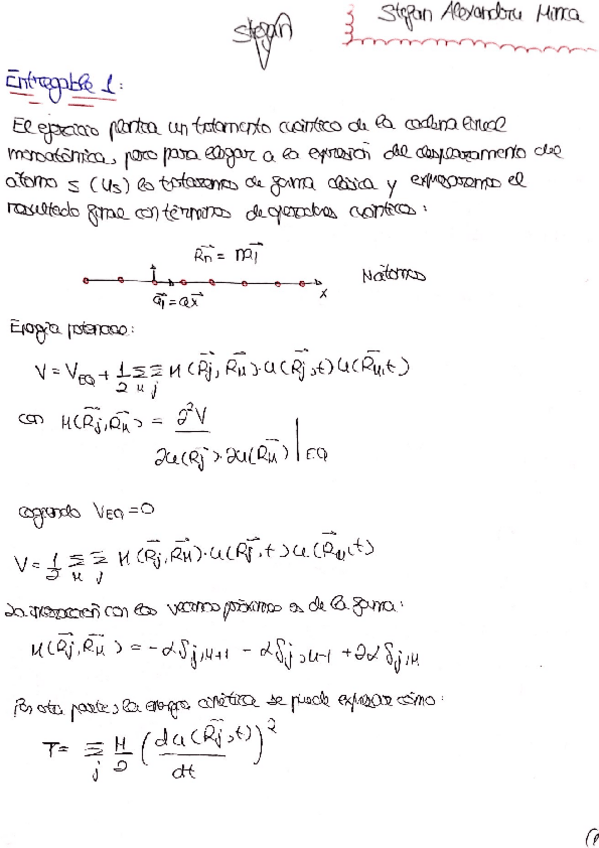 Stefan
Stefan Alexandru Mirica
Entregable 1:
El ejercicio plantea un tratamiento cuántico de la cadena lineal
monoatómica, pero para llegar a la expresión del desplazamiento del
átomo s (Us) lo trataremos de forma clásica y expresaremos el
resultado final con términos de operadores cuánticos:
Rn = na1
N átomos
a1 = ax
x
Energía potencial:
V = VEQ + 1/2 Σ_M Σ_j M(Rj, RM)·u(Rj,t)u(RM,t)
con M(Rj,RM) = ∂²V / ∂u(Rj)·∂u(RM) |EQ
cogiendo VEQ=0
V = 1/2 Σ_M Σ_j M(Rj, RM)·u(Rj,t)u(RM,t)
La interacción con los vecinos próximos es de la forma:
M(Rj,RM) = -αδj,M+1 - αδj,M-1 + 2αδj,M
Por otra parte, la energía cinética se puede expresar como:
T = Σ_j M/2 (du(Rj,t)/dt)²
(1